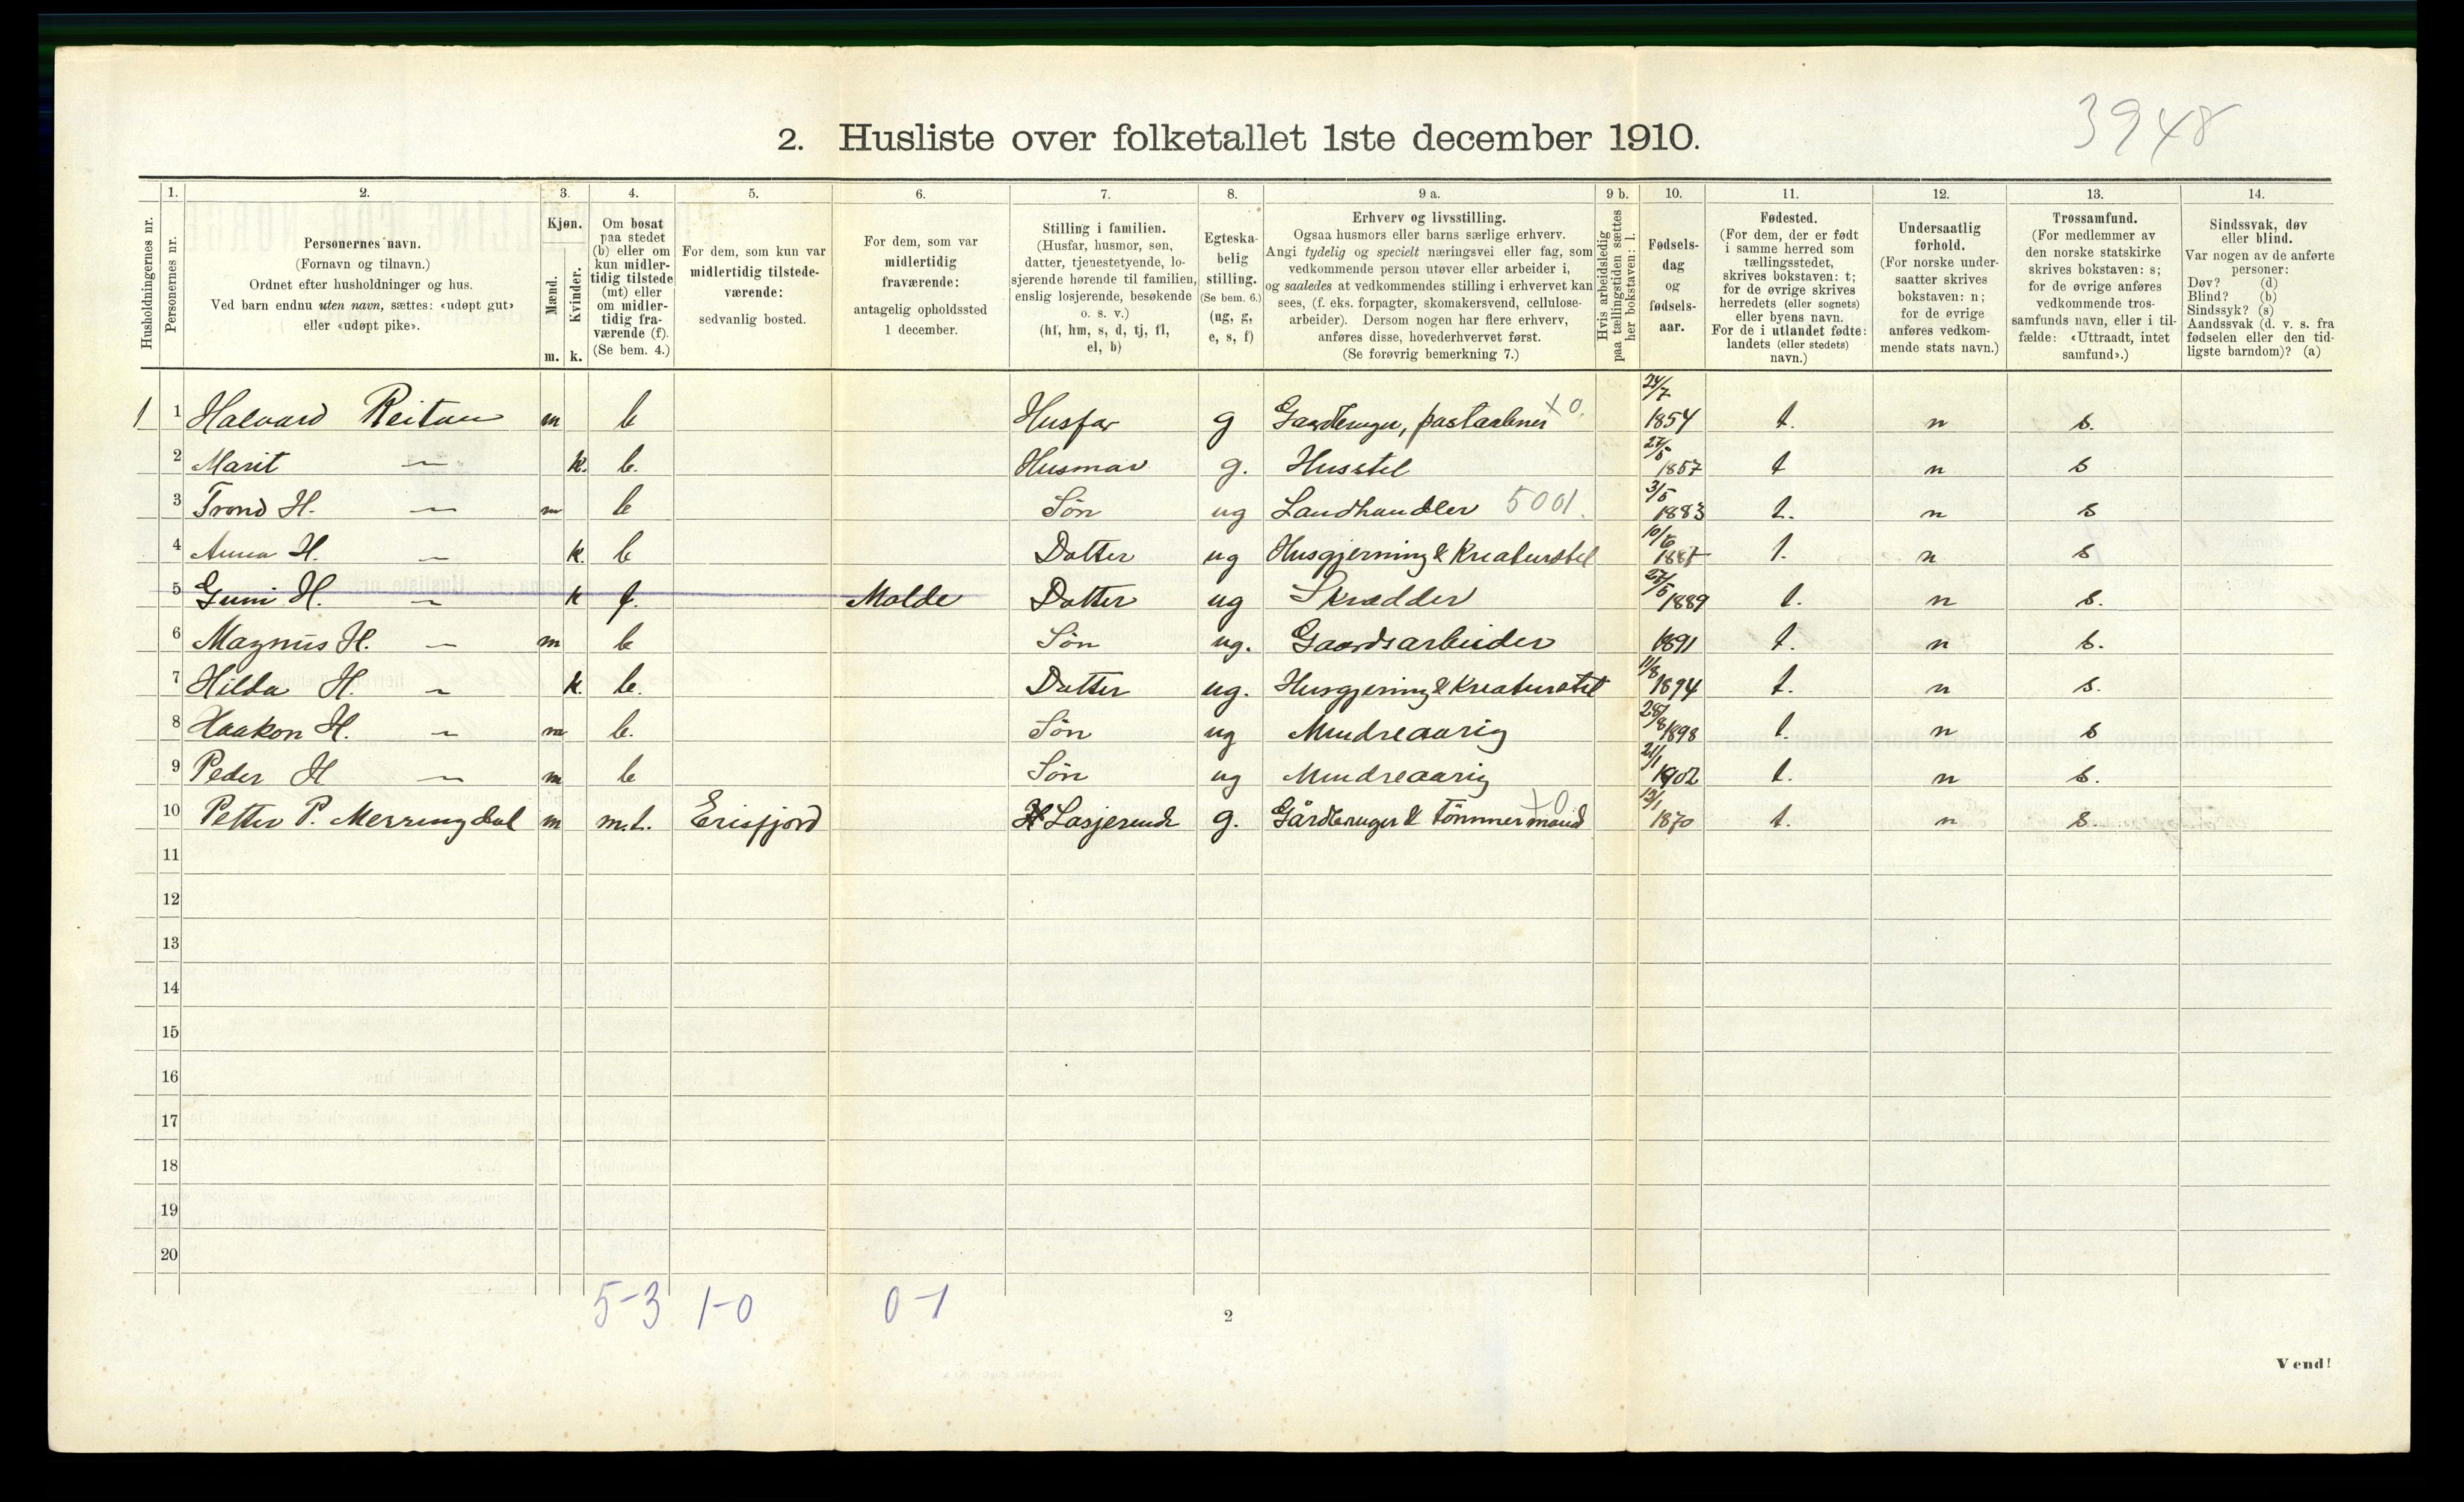 3948
2. Husliste over folketallet 1ste december 1910.
Husholdningernes nr.
1.
Personernes nr.
2.
Personernes navn.
(Fornavn og tilnavn.)
Ordnet efter husholdninger og hus.
Ved barn endnu uten navn, sættes: «udøpt gut»
eller «udøpt pike».
3.
Kjøn.
Mænd.
Kvinder.
m. k.
4.
Om bosat
paa stedet
(b) eller om
kun midler-
tidig tilstede
(mt) eller
om midler-
tidig fra-
værende (f).
(Se bem. 4.)
5.
For dem, som kun var
midlertidig tilstede-
værende:
sedvanlig bosted.
6.
For dem, som var
midlertidig
fraværende:
antagelig opholdssted
1 december.
7.
Stilling i familien.
(Husfar, husmor, søn,
datter, tjenestetyende, lo-
sjerende hørende til familien,
enslig losjerende, besøkende
o. s. v.)
(hf, hm, s, d, tj, fl,
el, b)
8.
Egteska-
belig
stilling.
(Se bem. 6.)
(ug, g,
e, s, f)
9 a.
Erhverv og livsstilling.
Ogsaa husmors eller barns særlige erhverv.
Angi tydelig og specielt næringsvei eller fag, som
vedkommende person utøver eller arbeider i,
og saaledes at vedkommendes stilling i erhvervet kan
sees, (f. eks. forpagter, skomakersvend, cellulose-
arbeider). Dersom nogen har flere erhverv,
anføres disse, hovederhvervet først.
(Se forøvrig bemerkning 7.)
9 b.
Hvis arbeidsledig
paa tællingstiden sættes
her bokstaven: l.
10.
Fødsels-
dag
og
fødsels-
aar.
11.
Fødested.
(For dem, der er født
i samme herred som
tællingsstedet,
skrives bokstaven: t;
for de øvrige skrives
herredets (eller sognets)
eller byens navn.
For de i utlandet fødte:
landets (eller stedets)
navn.)
12.
Undersaatlig
forhold.
(For norske under-
saatter skrives
bokstaven: n;
for de øvrige
anføres vedkom-
mende stats navn.)
13.
Trossamfund.
(For medlemmer av
den norske statskirke
skrives bokstaven: s;
for de øvrige anføres
vedkommende tros-
samfunds navn, eller i til-
fælde: «Uttraadt, intet
samfund».)
14.
Sindssvak, døv
eller blind.
Var nogen av de anførte
personer:
Døv? (d)
Blind? (b)
Sindssyk? (s)
Aandssvak (d. v. s. fra
fødselen eller den tid-
ligste barndom)? (a)
1 1 Halvard Reitan m b Husfar g Gaardbruger, x 0. 24/7 1854 t. n s.
2 Marit — k. b. Husmor g. Husstel 27/5 1857 t n s
3 Trond H. — m b Søn ug Landhandler 5001. 3/5 1883 t. n s
4 Anna H. — k. b Datter ug Husgjerning & Kreaturstel 10/6 t. n s
5 Guni H. — k f. Molde Datter ug Skrædder 27/5 1889 t. n s.
6 Magnus H. — m b Søn ug. Gaardsarbeider 1891 t. n s.
7 Hilda H. — k. b. Datter ug. Husgjerning & Kreaturstel 11/8 1894 t. n s.
8 Haakon H. — m b. Søn ug Mindreaarig 28/8 1898 t. n s
9 Peder H — m b Søn ug Mindreaarig 21/1 1902 t. n s.
10 Petter P. Merringdal m m.t. Erisfjord Losjerende g. Gårdbruger & Tømmermand x 0 1870 t. n s.
11
12
13
14
15
16
17
18
19
20
5-3 1-0 0-1
2
Vend!